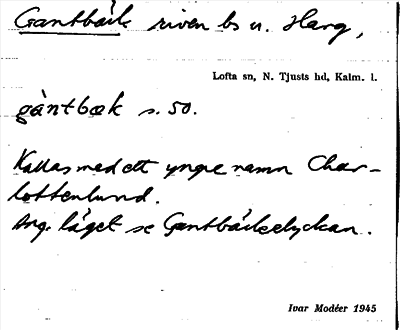 Gantbäck riven bs u. Harg,
Lofta sn, N. Tjusts hd, Kalm. l.
gàntbæk s. 50.
Kallas med ett yngre namn Char-
lottenlund.
Ang. läget se Gantbäckelyckan.
Ivar Modéer 1945